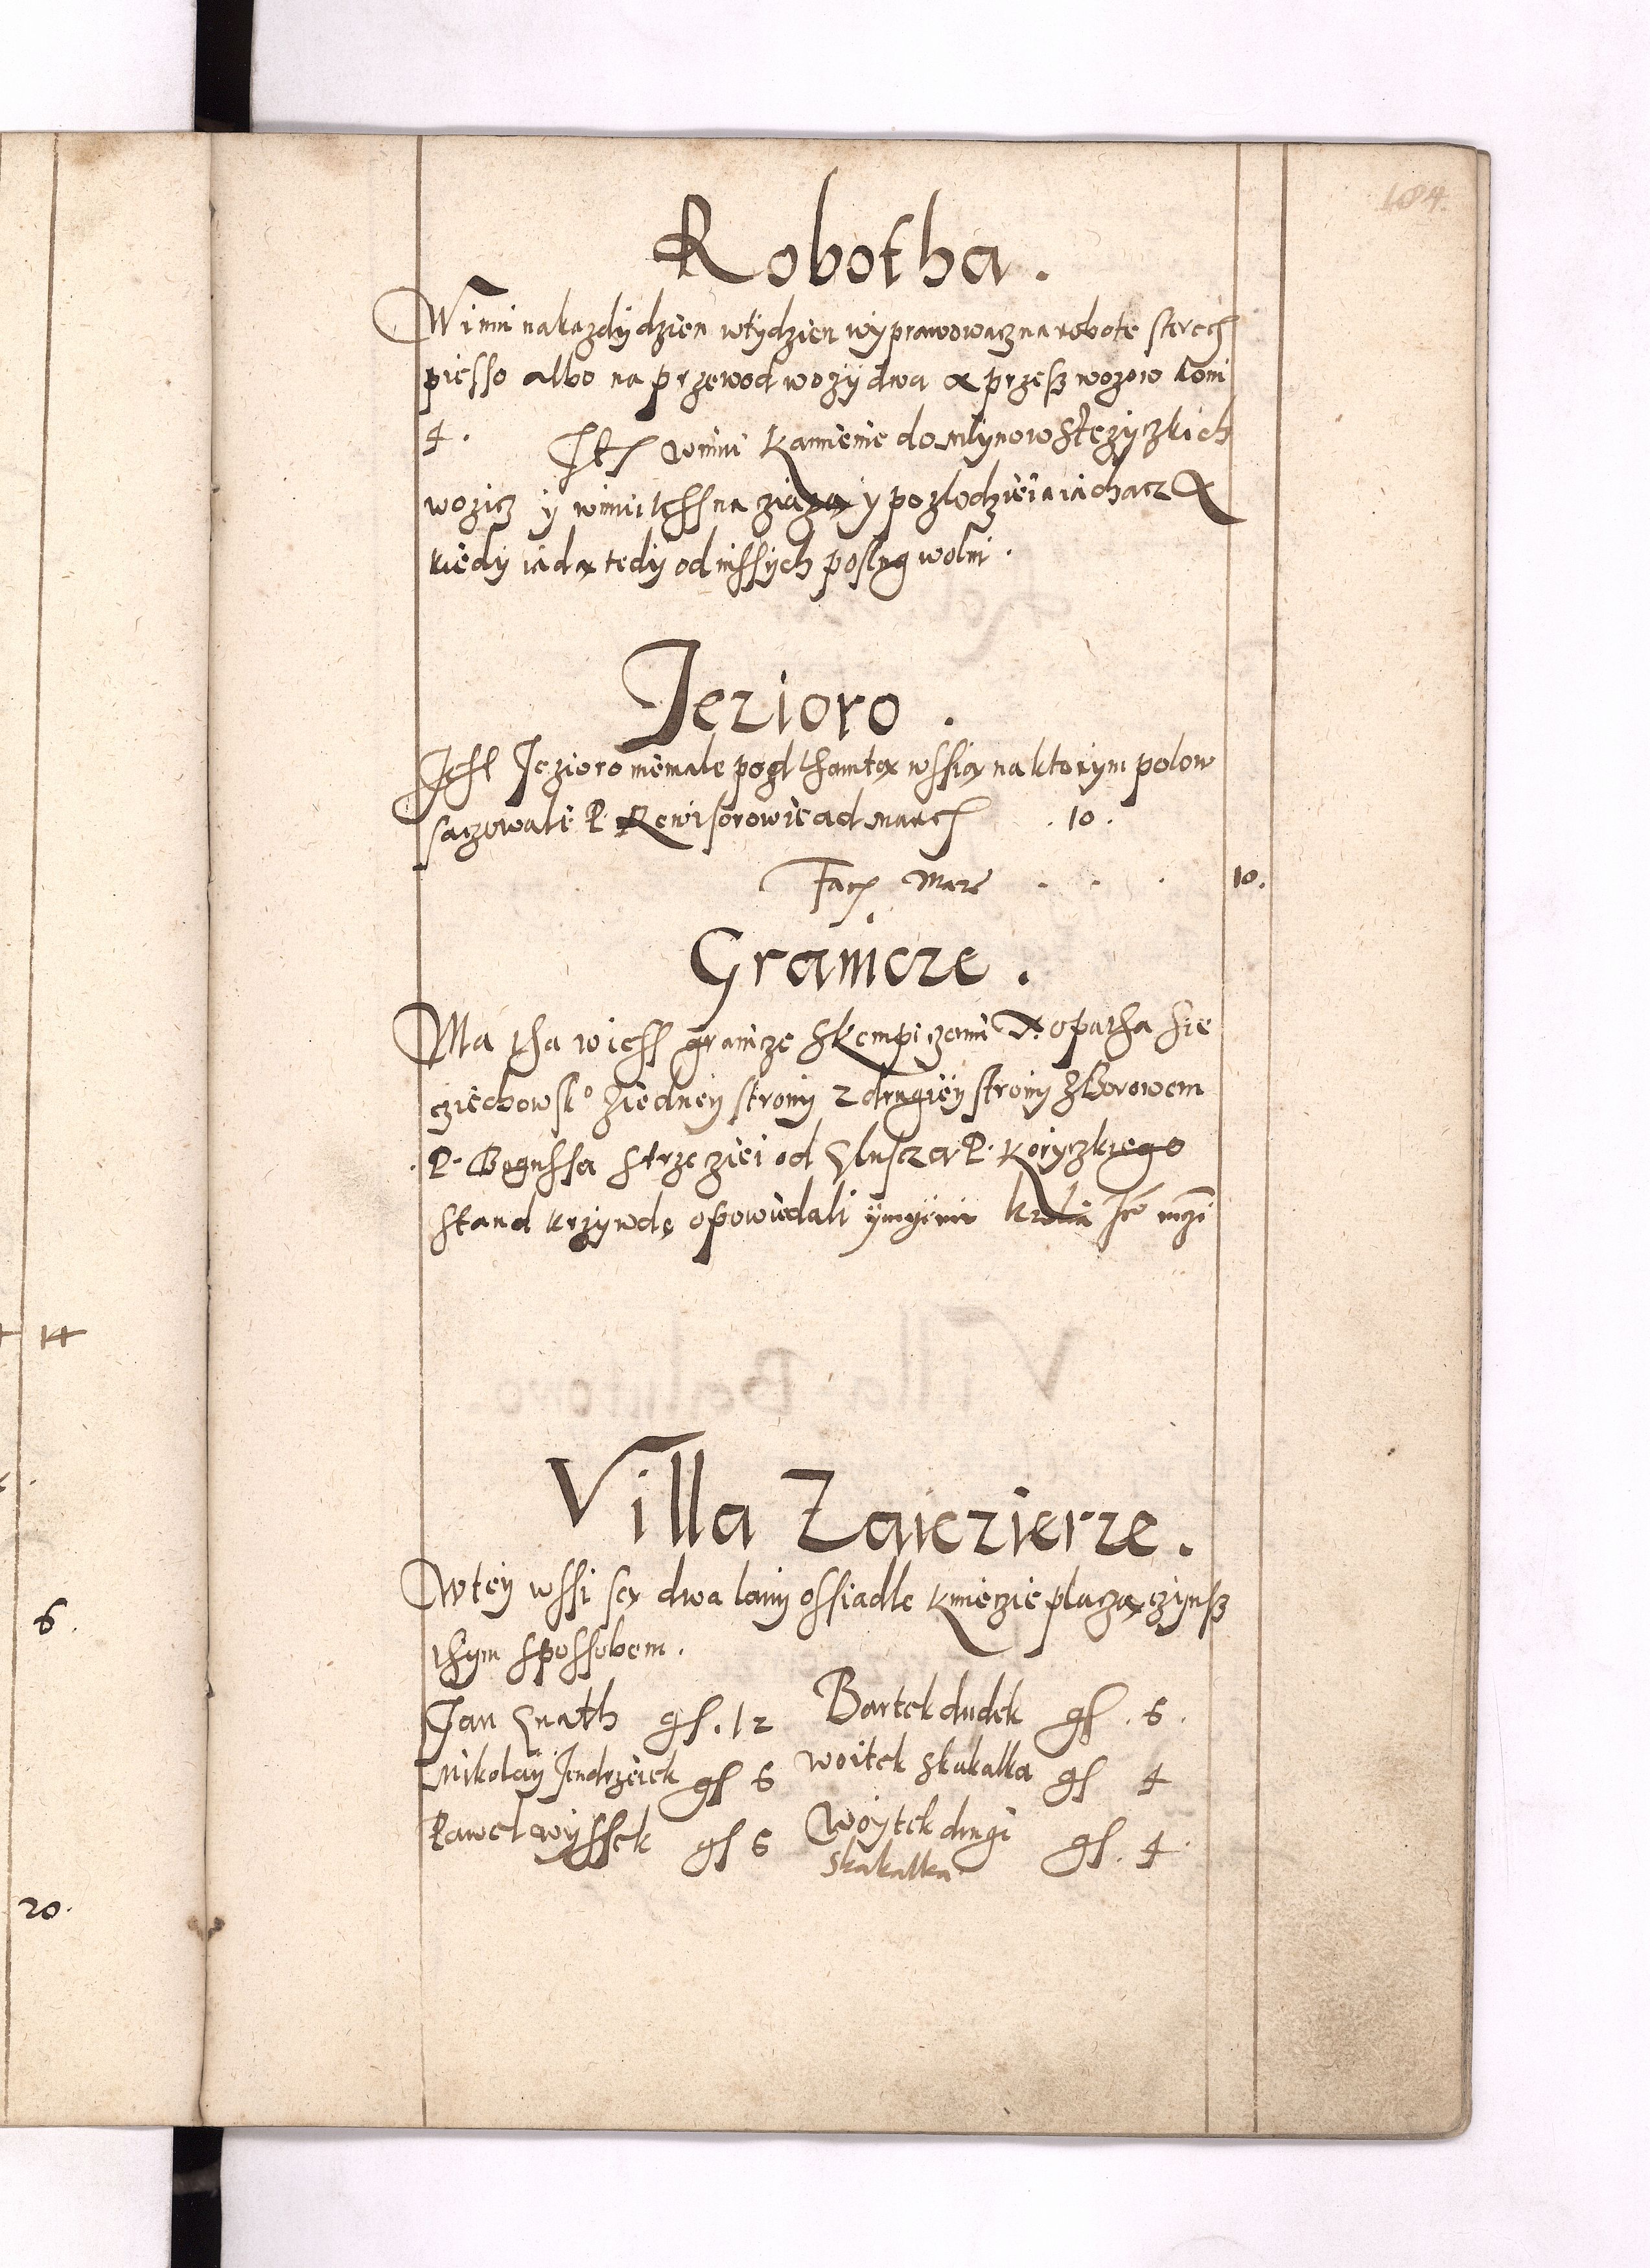 184.
Robotha.
Winni na kazdy dzien w tydzien wyprawowacz na robote sterech
piesso albo na przewod wozy dwa a przesz wozow koni
4. Item winni kamienie do mlynow Stezyczkich
wozicz y winni tesz na ziazą y po zlodzieia iachacz A
kiedy iadą tedy od inssych poslug wolni.
Jezioro.
Jest Jezioro niemale pogl thamtą wssią na ktorym polow
saczowali P. Rewisorowie ad march .10.
Facit Marc . . . 10.
Granicze.
Ma tha wiess granicze s Kempiczami X. opatha Sie
cziechowsko z iedney strony z drugiey strony z Borowem
P. Bogussa s trzecziei od Plusza P. Koryczkiego
stand krzywdę opowiedali ymyeniv krolia Je° mczi
Villa Zaiezierze.
W tey wssi są dwa lany ossiadle kmieczie placzą czynsz
thym spossobem.
Jan Gnath gs. 12 Bartek dudek gs. 6.
Mikolay Jendrzeiek gs 6 Woitek skakalka gs 4
Pawel wyssek gs 6 Woytek drugi skakalka gs. 4.
14
6.
20.